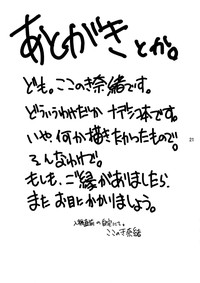 あとがきとか。
どーも。ここのき奈緒です。
どういうわけだか ナデシコ本です。
いや、何か描きたかったもので。
そんなわけで。
もしも、ご縁がありましたら、
また お目にかかりましょう。
ここのき奈緒
21